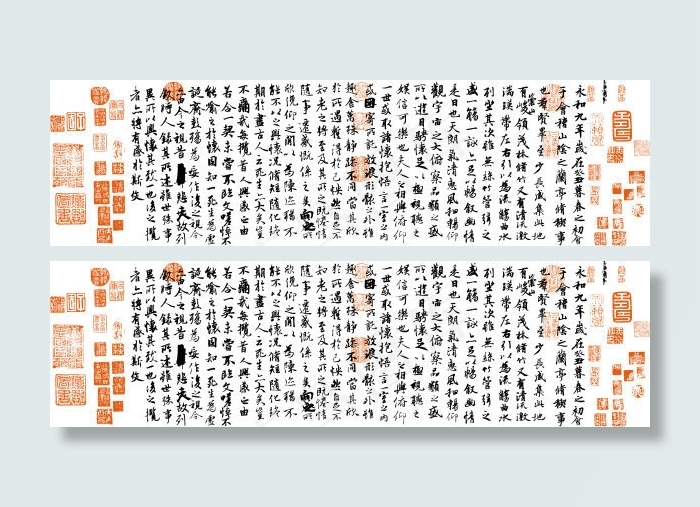 永和九年歲在癸丑暮春之初會
于會稽山陰之蘭亭脩稧事
也群賢畢至少長咸集此地
有崇山峻領茂林脩竹又有清流激
湍暎帶左右引以為流觴曲水
列坐其次雖無絲竹管弦之
盛一觴一詠亦足以暢敘幽情
是日也天朗氣清惠風和暢仰
觀宇宙之大俯察品類之盛
所以遊目騁懷足以極視聽之
娛信可樂也夫人之相與俯仰
一世或取諸懷抱悟言一室之內
或因寄所託放浪形骸之外雖
趣舍萬殊靜躁不同當其欣
於所遇蹔得於己怏然自足不
知老之將至及其所之既惓情
隨事遷感慨係之矣向之所
欣俛仰之閒以為陳迹猶不
能不以之興懷況脩短隨化終
期於盡古人云死生亦大矣豈
不痛哉每攬昔人興感之由
若合一契未嘗不臨文嗟悼不
能喻之於懷固知一死生為虛
誕齊彭殤為妄作後之視今
亦由今之視昔悲夫故列
敘時人錄其所述雖世殊事
異所以興懷其致一也後之攬
者亦將有感於斯文
永和九年歲在癸丑暮春之初會
于會稽山陰之蘭亭脩稧事
也群賢畢至少長咸集此地
有崇山峻領茂林脩竹又有清流激
湍暎帶左右引以為流觴曲水
列坐其次雖無絲竹管弦之
盛一觴一詠亦足以暢敘幽情
是日也天朗氣清惠風和暢仰
觀宇宙之大俯察品類之盛
所以遊目騁懷足以極視聽之
娛信可樂也夫人之相與俯仰
一世或取諸懷抱悟言一室之內
或因寄所託放浪形骸之外雖
趣舍萬殊靜躁不同當其欣
於所遇蹔得於己怏然自足不
知老之將至及其所之既惓情
隨事遷感慨係之矣向之所
欣俛仰之閒以為陳迹猶不
能不以之興懷況脩短隨化終
期於盡古人云死生亦大矣豈
不痛哉每攬昔人興感之由
若合一契未嘗不臨文嗟悼不
能喻之於懷固知一死生為虛
誕齊彭殤為妄作後之視今
亦由今之視昔悲夫故列
敘時人錄其所述雖世殊事
異所以興懷其致一也後之攬
者亦將有感於斯文